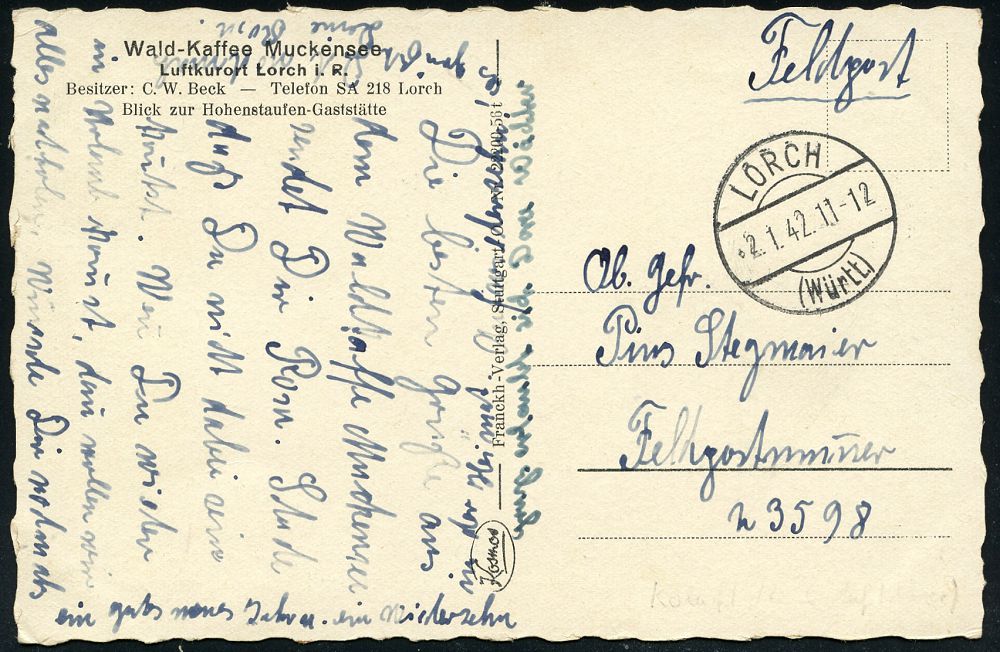 Wald-Kaffee Muckensee
Luftkurort Lorch i. R.
Besitzer: C. W. Beck — Telefon SA 218 Lorch
Blick zur Hohenstaufen-Gaststätte
Feldpost
LORCH
2.1.42.11-12
(Württ)
Ob. Gefr.
Pius Stegmaier
Feldpostnummer
23598
Die besten Grüße aus
dem Waldkaffe Muckensee
sendet Dir Rosa. Schade
dass Du nicht dabei sein
kannst. Wen Du wieder
in Urlaub kommst, dan wollen wir
alles nachholen. Wünsche Dir nochmals
ein gutes neues Jahr u. ein Wiedersehn
Franckh-Verlag, Stuttgart-O
Kosmos